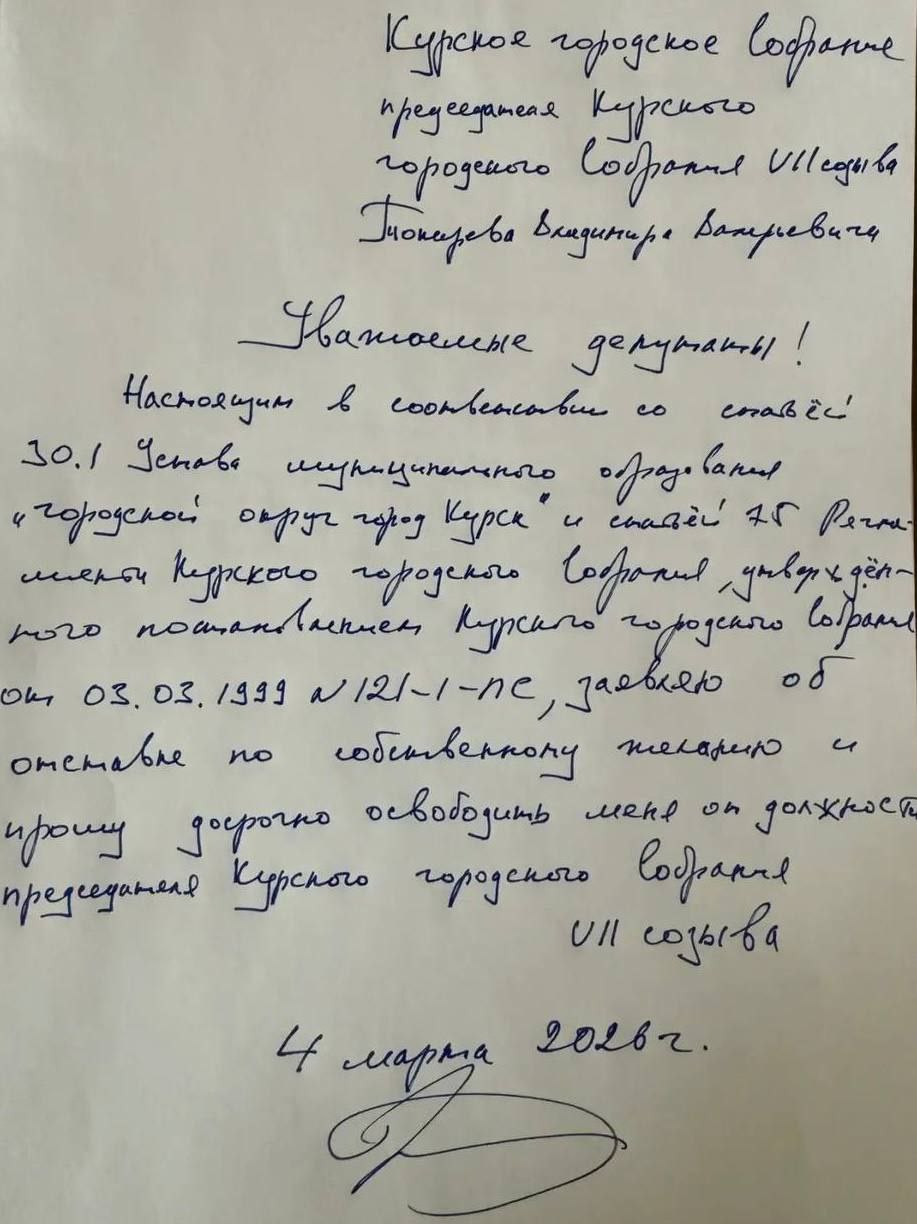 Курское городское Собрание
председателя Курского
городского Собрания VII созыва
Токарева Владимира Валерьевича
Уважаемые депутаты!
Настоящим в соответствии со статьёй
30.1 Устава муниципального образования
"городской округ город Курск" и статьёй 75 Регла-
мента Курского городского Собрания, утверждён-
ного постановлением Курского городского Собрания
от 03.03.1999 N 121-1-ПС, заявляю об
отставке по собственному желанию и
прошу досрочно освободить меня от должности
председателя Курского городского Собрания
VII созыва
4 марта 2026 г.